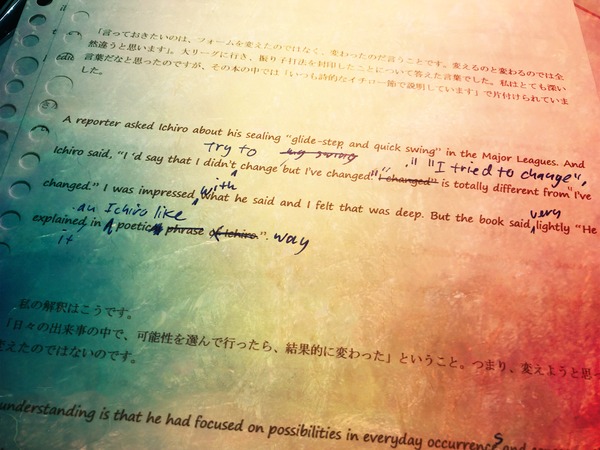 il
「言っておきたいのは、フォームを変えたのではなく、変わったのだ言うことです。変えるのと変わるのでは全
然違うと思います」。大リーグに行き、振り子打法を封印したことについて答えた言葉でした。私はとても深い
言葉だなと思ったのですが、その本の中では「いつも詩的なイチロー節で説明しています」で片付けられていま
した。
A reporter asked Ichiro about his sealing "glide-step and quick swing" in the Major Leagues. And
try to my swing " "I tried to change",
Ichiro said, "I 'd say that I didn't change but I've changed." "I changed" is totally different from "I've
with very
changed." I was impressed what he said and I felt that was deep. But the book said lightly "He
an Ichiro like
explained in poetic phrase of Ichiro". way
it
私の解釈はこうです。
「日々の出来事の中で、可能性を選んで行ったら、結果的に変わった」ということ。つまり、変えようと思っ
変えたのではないのです。
understanding is that he had focused on possibilities in everyday occurrences and